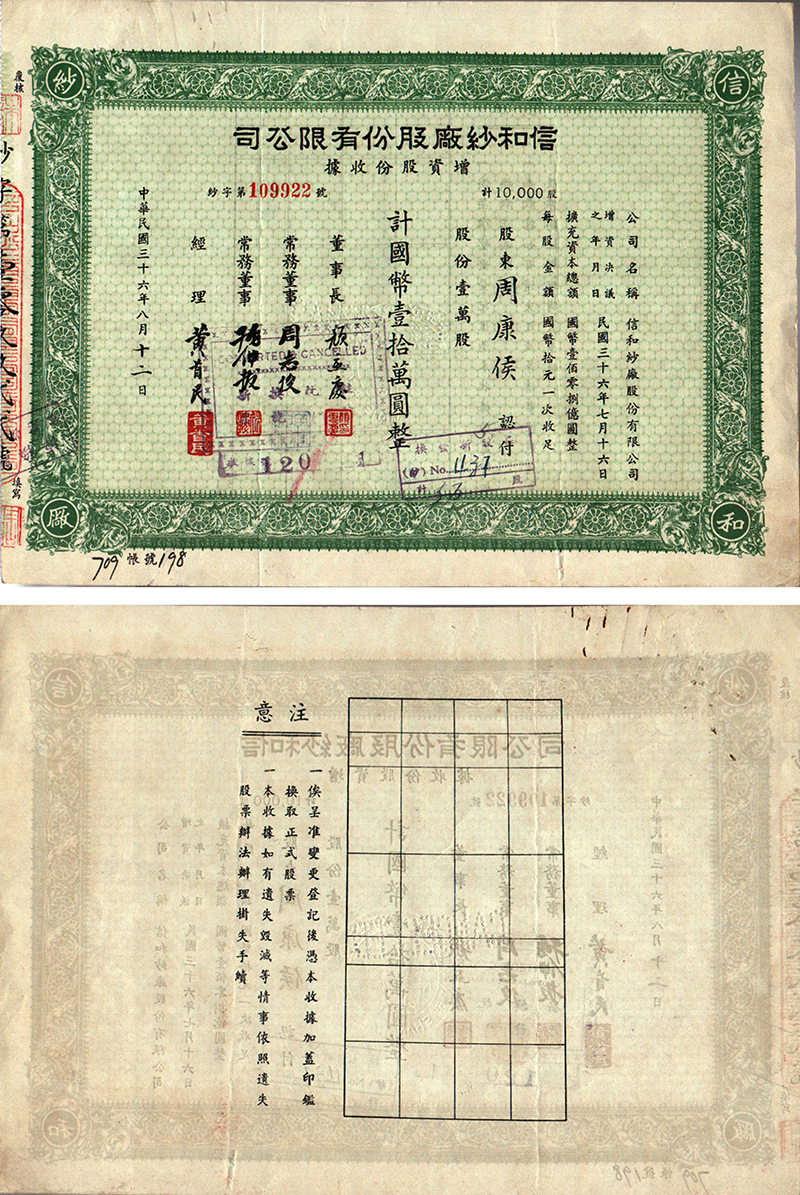 信和紗廠股份有限公司
增資股份收據
計10,000股
紗字第109922號
公司名稱 信和紗廠股份有限公司
增資決議之年月日 民國三十六年七月十六日
擴充資本總額 國幣壹佰零捌億圓整
每股金額 國幣拾元一次收足
股東 周康侯 認付
股份壹萬股
計國幣壹拾萬圓整
董事長
常務董事
常務董事
經理
中華民國三十六年八月十二日
信
和
紗
廠
覆核
填寫
CONVERTED & CANCELLED
120
換新股
(紗) No. 1137
計 股
709 帳號 198
注意
一俟呈准變更登記後憑本收據加蓋印鑑
換取正式股票
一本收據如有遺失毀滅等情事依照遺失
股票辦法辦理掛失手續